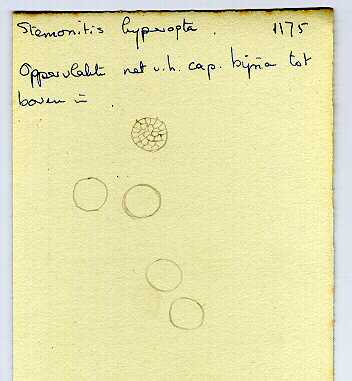 Stemonitis hyperopta. 1175
Oppervlakte net v.h. cap. bijna tot
boven in